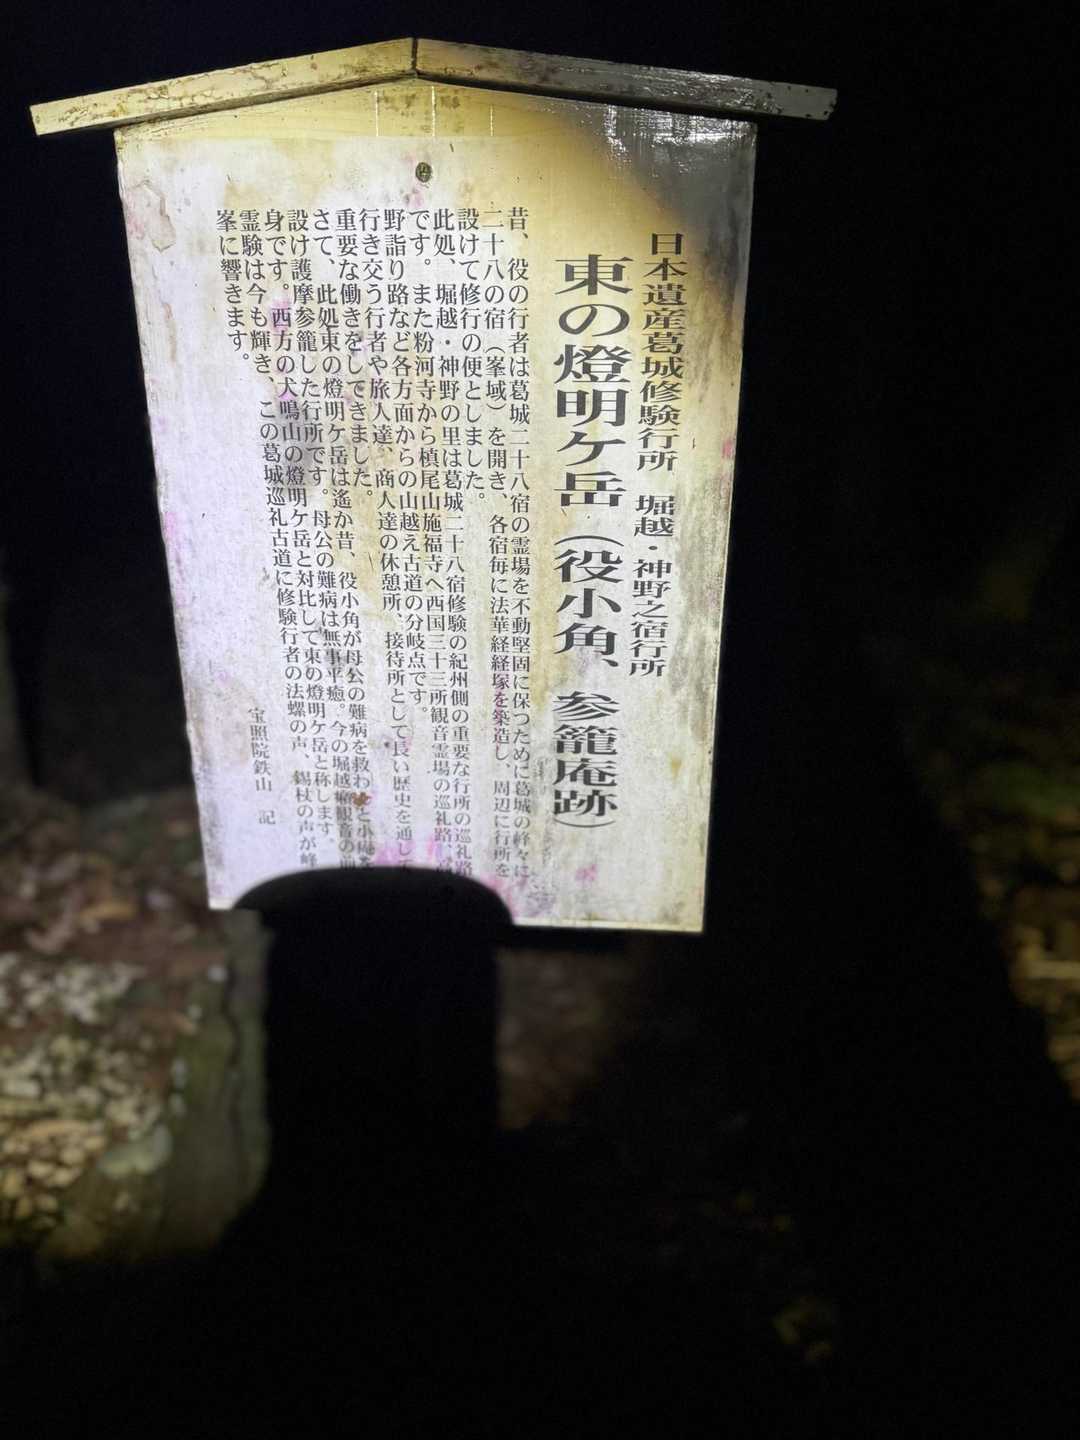 日本遺産葛城修験行所　堀越・神野之宿行所
東の燈明ケ岳（役小角、参籠庵跡）
昔、役の行者は葛城二十八宿の霊場を不動堅固に保つために葛城の峰々に
二十八の宿（峯域）を開き、各宿毎に法華経経塚を築造し、周辺に行所を
設けて修行の便としました。
此処、堀越・神野の里は葛城二十八宿修験の紀州側の重要な行所の巡礼路
です。また粉河寺から槙尾山施福寺へ西国三十三所観音霊場の巡礼路、
野詣り路など各方面からの山越え古道の分岐点です。
行き交う行者や旅人達、商人達の休憩所、接待所として長い歴史を通し
重要な働きをしてきました。
さて、此処東の燈明ケ岳は遙か昔、役小角が母公の難病を救わ と小庵
設け護摩参籠した行所です。母公の難病は無事平癒。今の堀越癪観音の前
身です。西方の犬鳴山の燈明ケ岳と対比して東の燈明ケ岳と称します。
霊験は今も輝き、この葛城巡礼古道に修験行者の法螺の声、錫杖の声が峰
峯に響きます。
宝照院鉄山　記